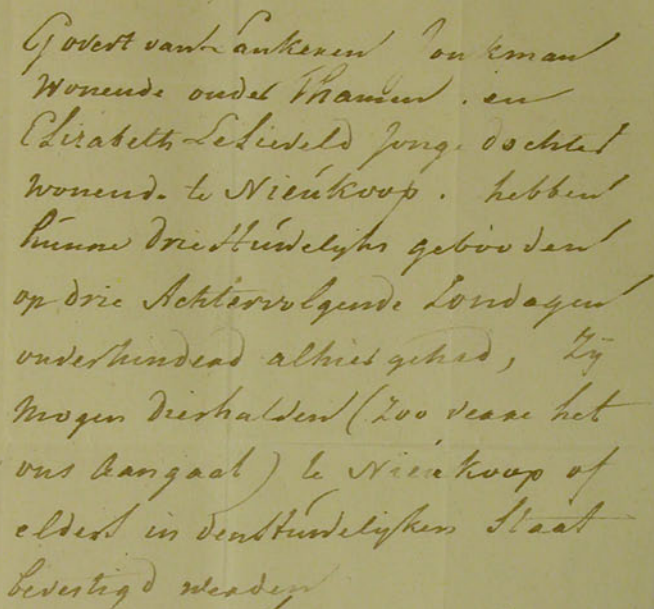 Govert van Lankeren Jonkman
Wonende onder Thamen. en
Elizabeth Lelieveld Jonge dochter
Wonende te Nieúkoop. hebben
húnne drie Húwelijks gebooden
op drie Achtervolgende Zondagen
onverhinderd alhier gehad, Zij
Mogen dierhalven (Zoo verre het
ons Aangaat) te Nieúkoop of
elders in den Húwelijken Staat
bevestigd werden